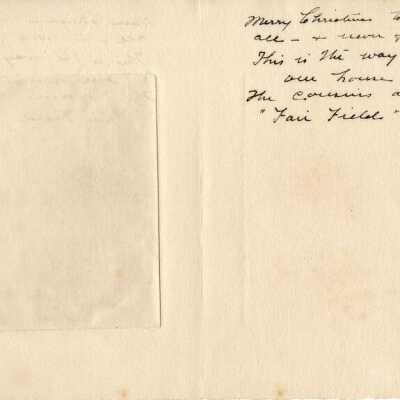 Merry Christmas to
all - & never
This is the way
our house
The cousins a
"Fair Fields"